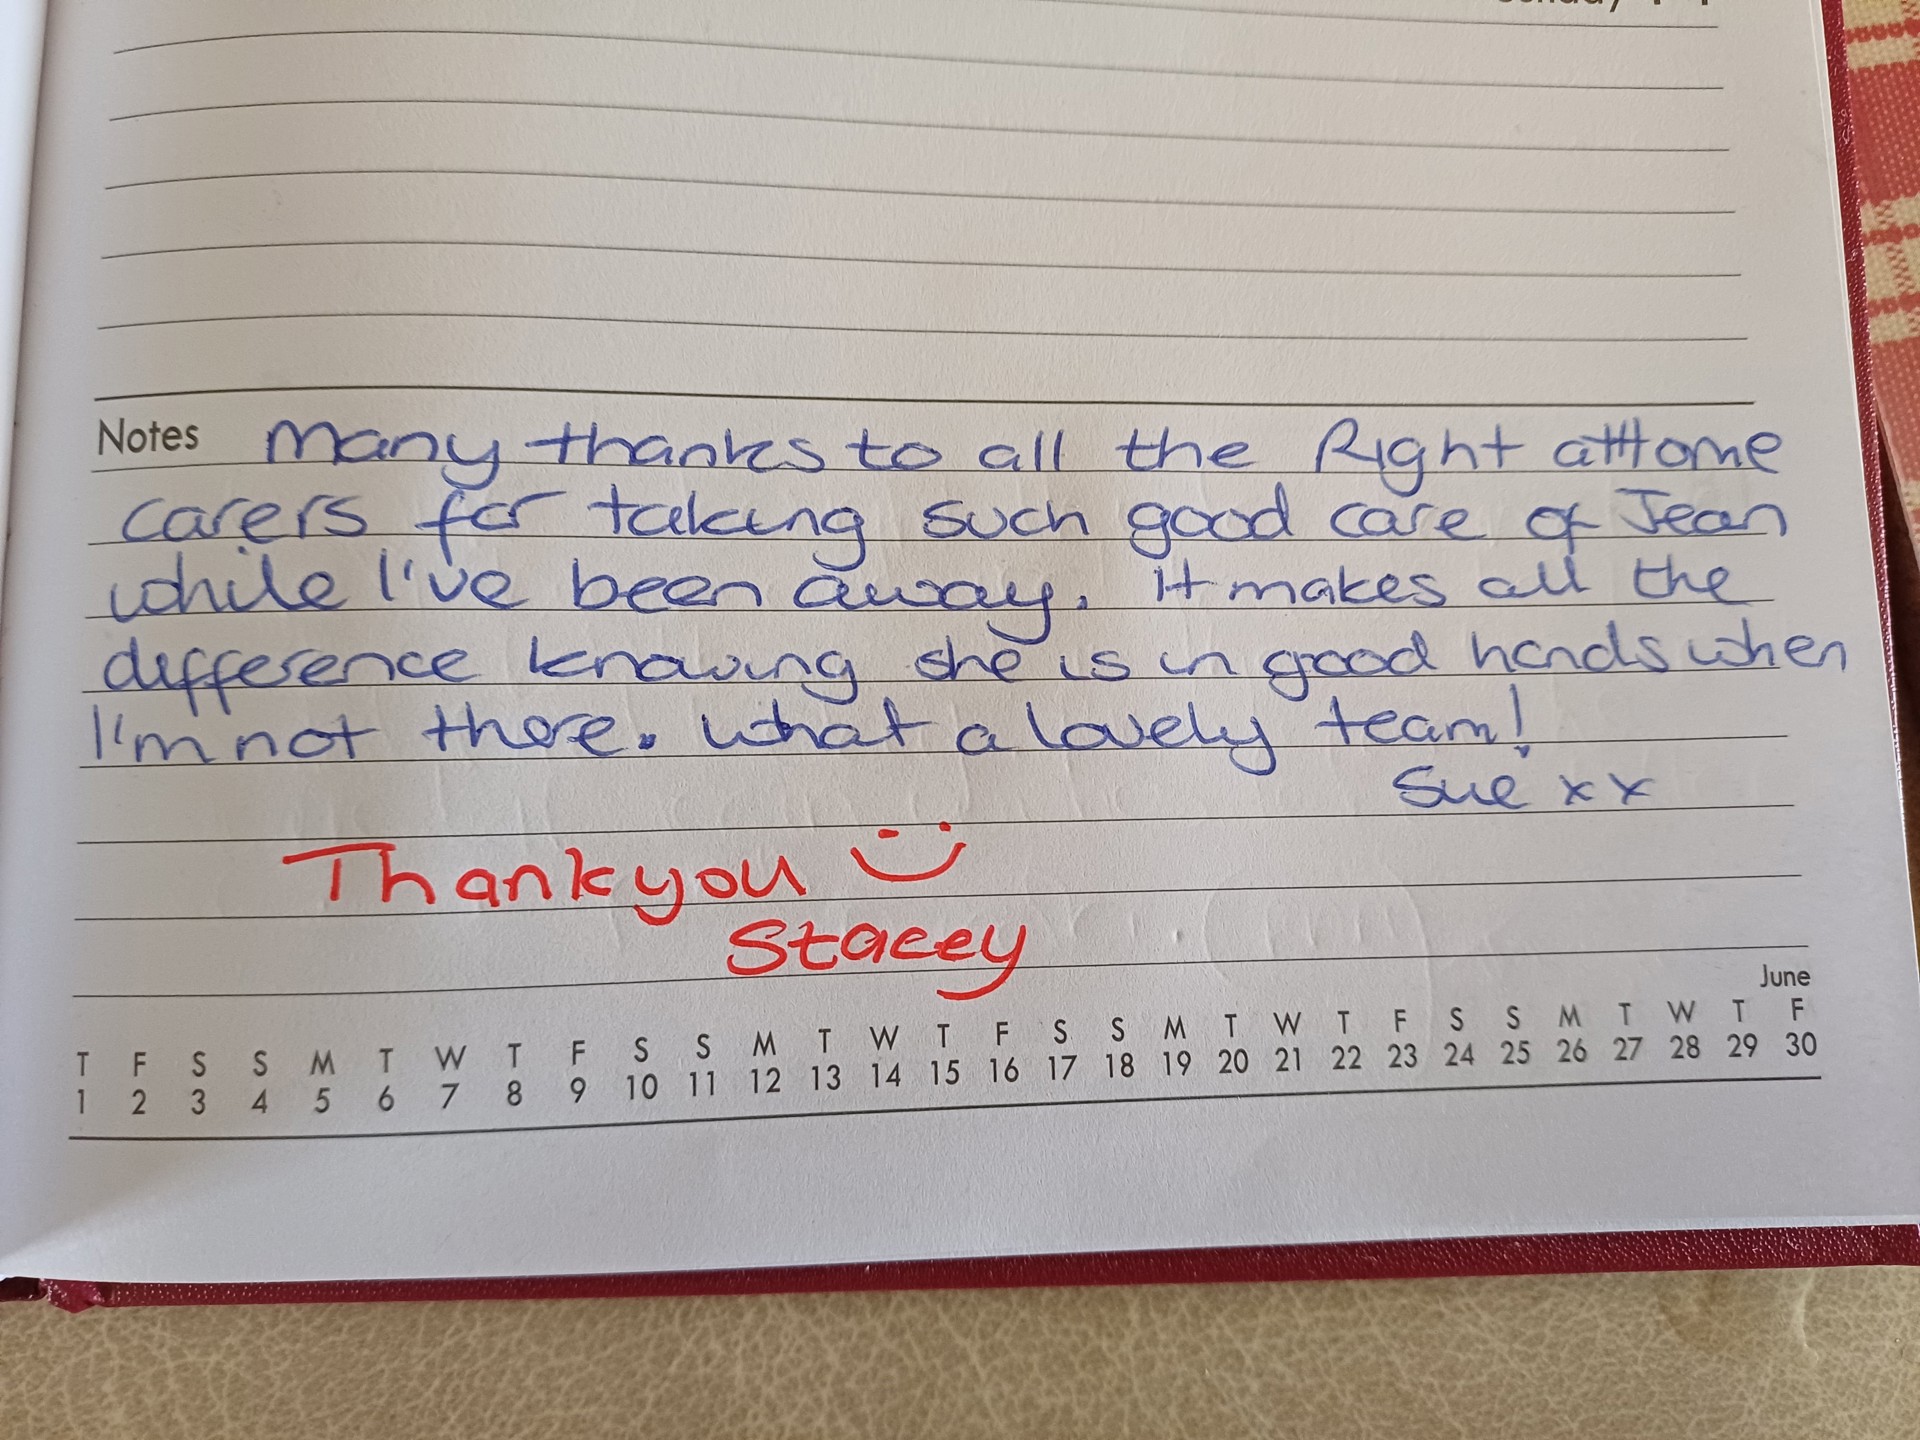 Notes Many thanks to all the Right at Home
carers for taking such good care of Jean
while I've been away. It makes all the
difference knowing she is in good hands when
I'm not there. What a lovely team!
Sue xx
Thankyou
Stacey
June
T F S S M T W T F S S M T W T F S S M T W T F S S M T W T F
1 2 3 4 5 6 7 8 9 10 11 12 13 14 15 16 17 18 19 20 21 22 23 24 25 26 27 28 29 30